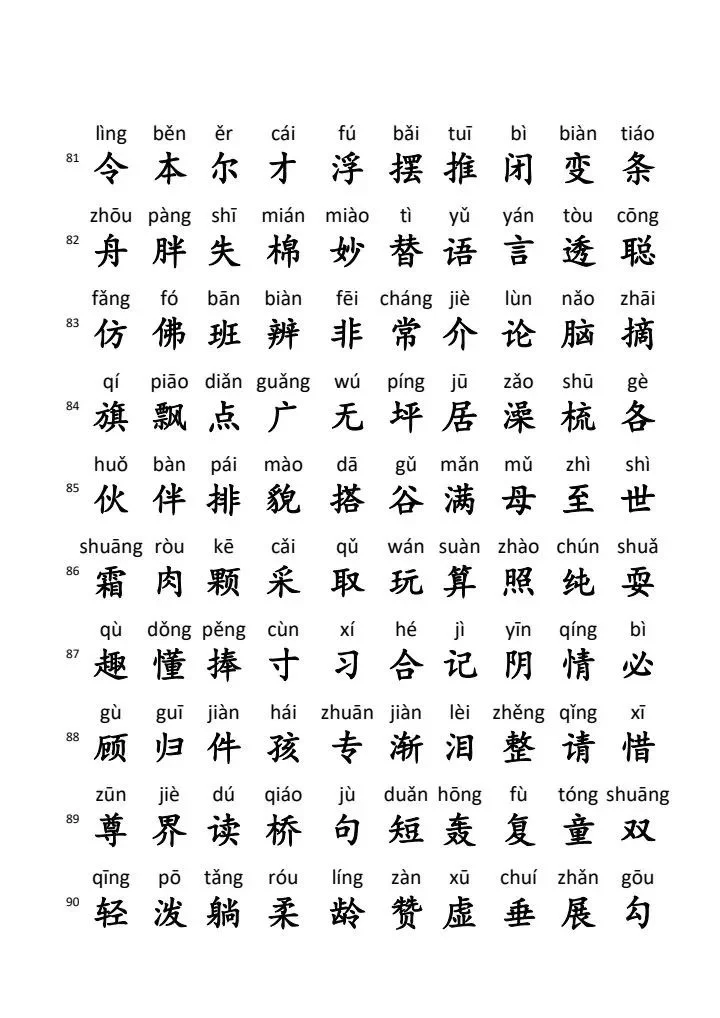 lìng běn ěr cái fú bǎi tuī bì biàn tiáo
81 令 本 尔 才 浮 摆 推 闭 变 条
zhōu pàng shī mián miào tì yǔ yán tòu cōng
82 舟 胖 失 棉 妙 替 语 言 透 聪
fǎng fó bān biàn fēi cháng jiè lùn nǎo zhāi
83 仿 佛 班 辨 非 常 介 论 脑 摘
qí piāo diǎn guǎng wú píng jū zǎo shū gè
84 旗 飘 点 广 无 坪 居 澡 梳 各
huǒ bàn pái mào dā gǔ mǎn mǔ zhì shì
85 伙 伴 排 貌 搭 谷 满 母 至 世
shuāng ròu kē cǎi qǔ wán suàn zhào chún shuǎ
86 霜 肉 颗 采 取 玩 算 照 纯 耍
qù dǒng pěng cùn xí hé jì yīn qíng bì
87 趣 懂 捧 寸 习 合 记 阴 情 必
gù guī jiàn hái zhuān jiàn lèi zhěng qǐng xī
88 顾 归 件 孩 专 渐 泪 整 请 惜
zūn jiè dú qiáo jù duǎn hōng fù tóng shuāng
89 尊 界 读 桥 句 短 轰 复 童 双
qīng pō tǎng róu líng zàn xū chuí zhǎn gōu
90 轻 泼 躺 柔 龄 赞 虚 垂 展 勾